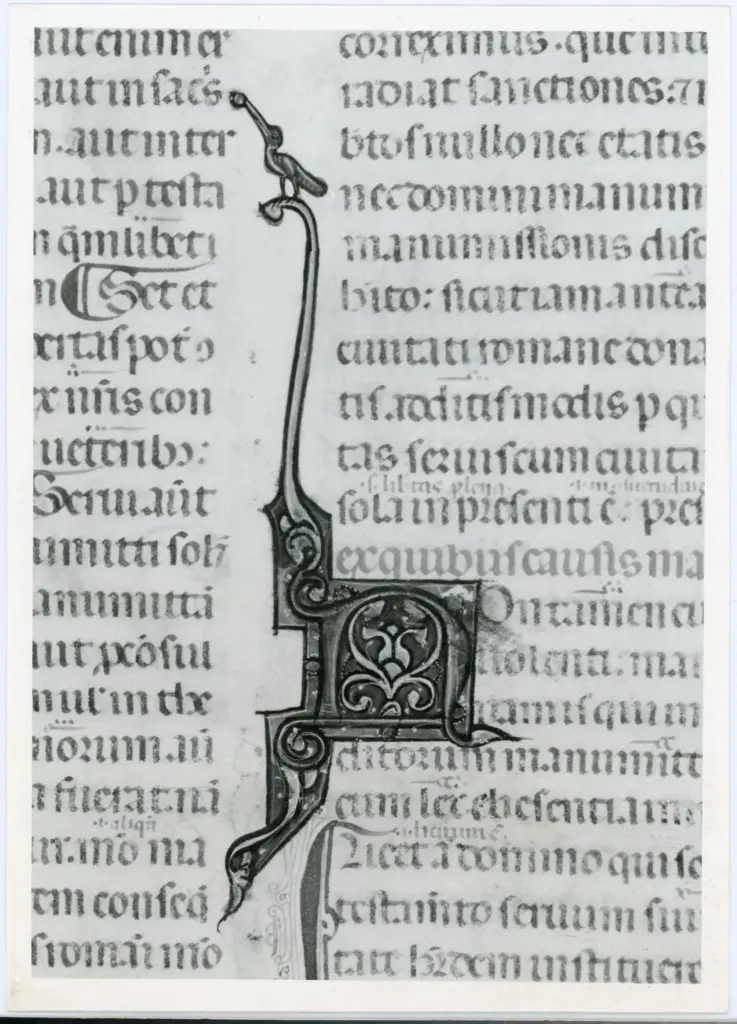 aut enim er
aut in sacs
n. aut inter
aut p testa
n q̄mlibet i
n Set et
ertas pot ɔ
ex iīis con
Serui aūt
umitti sol
anumittā
aut p̄co̅sul
mul' in the
fuerat nā
ur. mō ma
em conseq̄
si romāi mō
correximus. que in
radiat sanctiones: ⁊
bto ſ nullo nec etatis
nec domini manum
manumissionis disc
bito: sicut iam antea
ciuitati romane dona
tis. additis modis p q
tas seruis cum ciuita
sola in presenti ē: pres
ex quibus causis ma
on tamen cu
uolenti. ma
tam is qui in
ditorum manumitt
cum lex elie sentia
Licet a domino qui so
testam̄to seruum su
tate h̄edem instituere